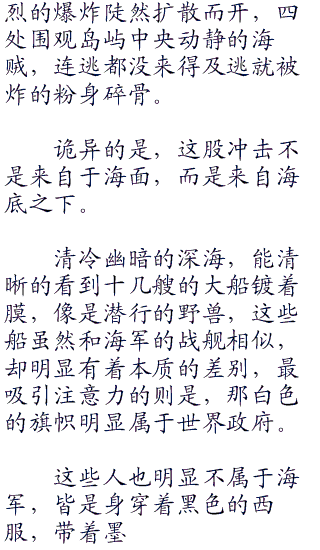 烈的爆炸陡然扩散而开，四
处围观岛屿中央动静的海
贼，连逃都没来得及逃就被
炸的粉身碎骨。
诡异的是，这股冲击不
是来自于海面，而是来自海
底之下。
清冷幽暗的深海，能清
晰的看到十几艘的大船镀着
膜，像是潜行的野兽，这些
船虽然和海军的战舰相似，
却明显有着本质的差别，最
吸引注意力的则是，那白色
的旗帜明显属于世界政府。
这些人也明显不属于海
军，皆是身穿着黑色的西
服，带着墨